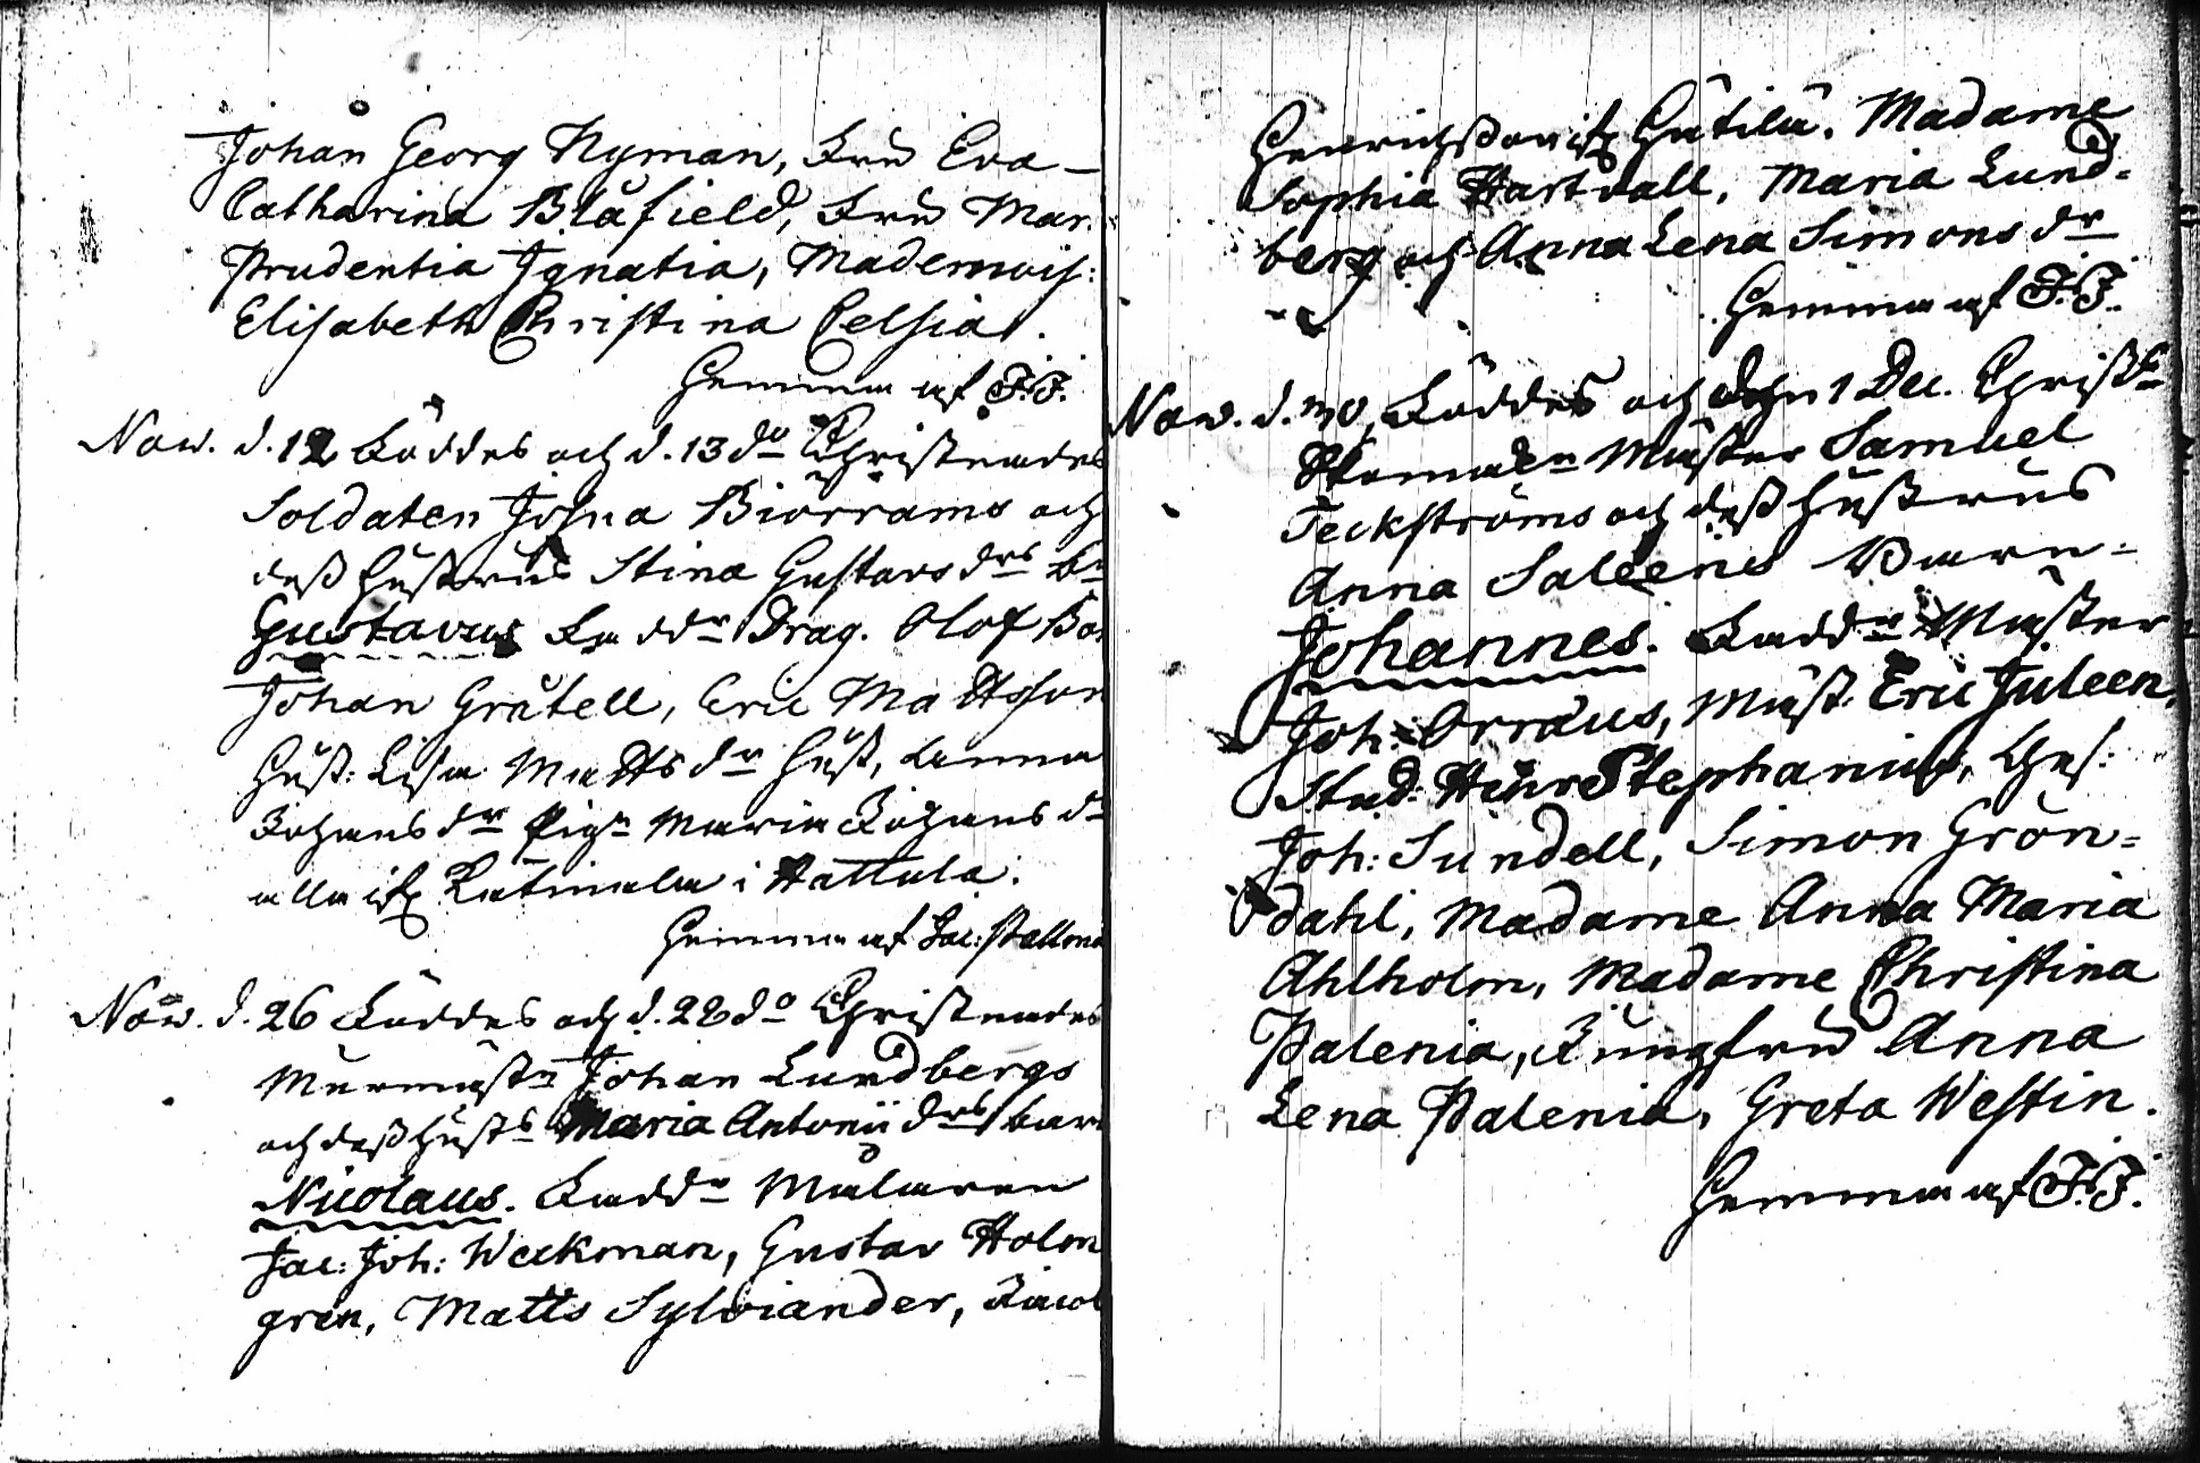 Johan Georg Nyman, Fru Eva
Catharina Blåfield, Fru Mar.
Prudentia Ignatia, Mademois:
Elisabeth Christina Celsia.
Hemma af J.J.
Nov. d. 12 föddes och d. 13 do Christnades
Soldaten Josua Biörrams och
deß hustrus Stina Gustavs drs b
Gustavus Faddr Drag. Olof
Johan Grutell, Eric Mattsson
Hust: Lisa Matts dr Hust, Anna
Johans dr Pign Maria Johans dr
alla ifr Katinala i Hattula.
Hemma af Jac:
Nov. d. 26 föddes och d. 28 do Christnades
Murmästn Johan Lundbergs
och deß Hust:s Maria Antonii drs barn
Nicolaus. Faddr Målaren
Jac: Joh: Weckman, Gustav Holm
gren, Matts Sylviander, Jacob
Henrichßon ifr Hätilä. Madame
Sophia Hartvall, Maria Lund=
berg och Anna Lena Simons dr
Hemma af J.J.
Nov. d. 30, föddes och den 1 Dec. Christn
Mäster Samuel
Teckströms och deß hustrus
Anna Saleens Barn=
Johannes. Faddr Mäster
Joh: Orraeus, Mäst. Eric Juleen,
Stud: Henr Stephanius, Ges:
Joh: Sundell, Simon Grön=
dahl, Madame Anna Maria
Ahlholm, Madame Christina
Palenia, Jungfru Anna
Lena Palenia, Greta Westin.
Hemma af J.J.